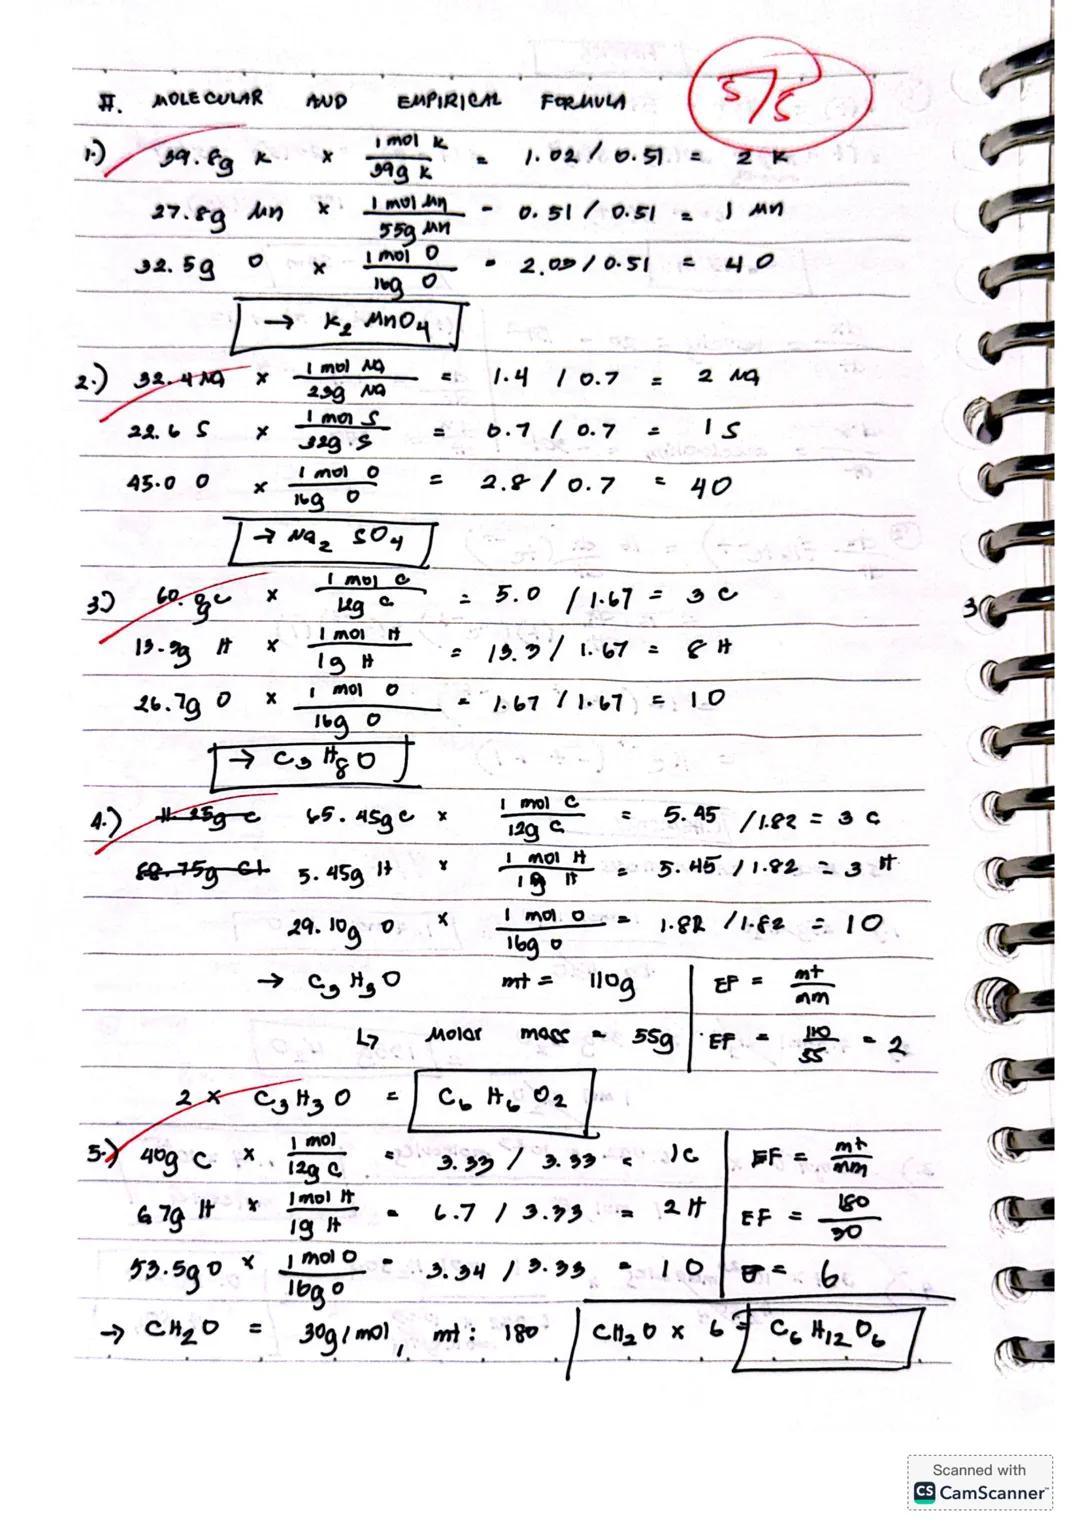 5/5
II. MOLECULAR AND EMPIRICAL FORMULA
1.) 39.8g K × 1 mol K / 39g K = 1.02 / 0.51 = 2 K
27.8g Mn × 1 mol Mn / 55g Mn = 0.51 / 0.51 = 1 Mn
32.5g O × 1 mol O / 16g O = 2.03 / 0.51 = 4 O
→ K₂ MnO₄
2.) 32.4 Na × 1 mol Na / 23g Na = 1.4 / 0.7 = 2 Na
22.6 S × 1 mol S / 32g S = 0.7 / 0.7 = 1 S
45.0 O × 1 mol O / 16g O = 2.8 / 0.7 = 4O
→ Na₂ SO₄
3.) 60. g C × 1 mol C / 12g C = 5.0 / 1.67 = 3 C
13.3g H × 1 mol H / 1g H = 13.3 / 1.67 = 8 H
26.7g O × 1 mol O / 16g O = 1.67 / 1.67 = 1 O
→ C₃ H₈ O
4.) 11.25g C 65.45g C × 1 mol C / 12g C = 5.45 / 1.82 = 3 C
88.75g Cl 5.45g H × 1 mol H / 1g H = 5.45 / 1.82 = 3 H
29.10g O × 1 mol O / 16g O = 1.82 / 1.82 = 1 O
→ C₃ H₃ O mt = 110g EF = mt / mm
↳ Molar mass = 55g EF = 110 / 55 = 2
2 × C₃ H₃ O = C₆ H₆ O₂
5.) 40g C × 1 mol / 12g C = 3.33 / 3.33 = 1C EF = mt / mm
6.7g H × 1 mol H / 1g H = 6.7 / 3.33 = 2 H EF = 180 / 30
53.5g O × 1 mol O / 16g O = 3.34 / 3.33 = 1 O = 6
→ CH₂O = 30g/mol, mt: 180 CH₂O × 6 = C₆ H₁₂ O₆
3
Scanned with
CS CamScanner